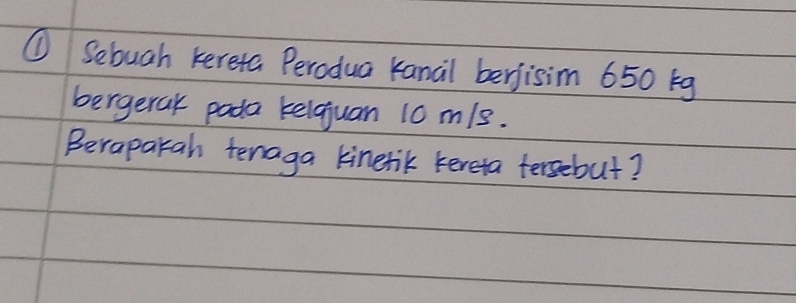 ① Sebuah kereta Perodua Kancil berjisim 650 kg
bergerak pada kelajuan 10 m/s.
Berapakah tenaga kinetik kereta tersebut?